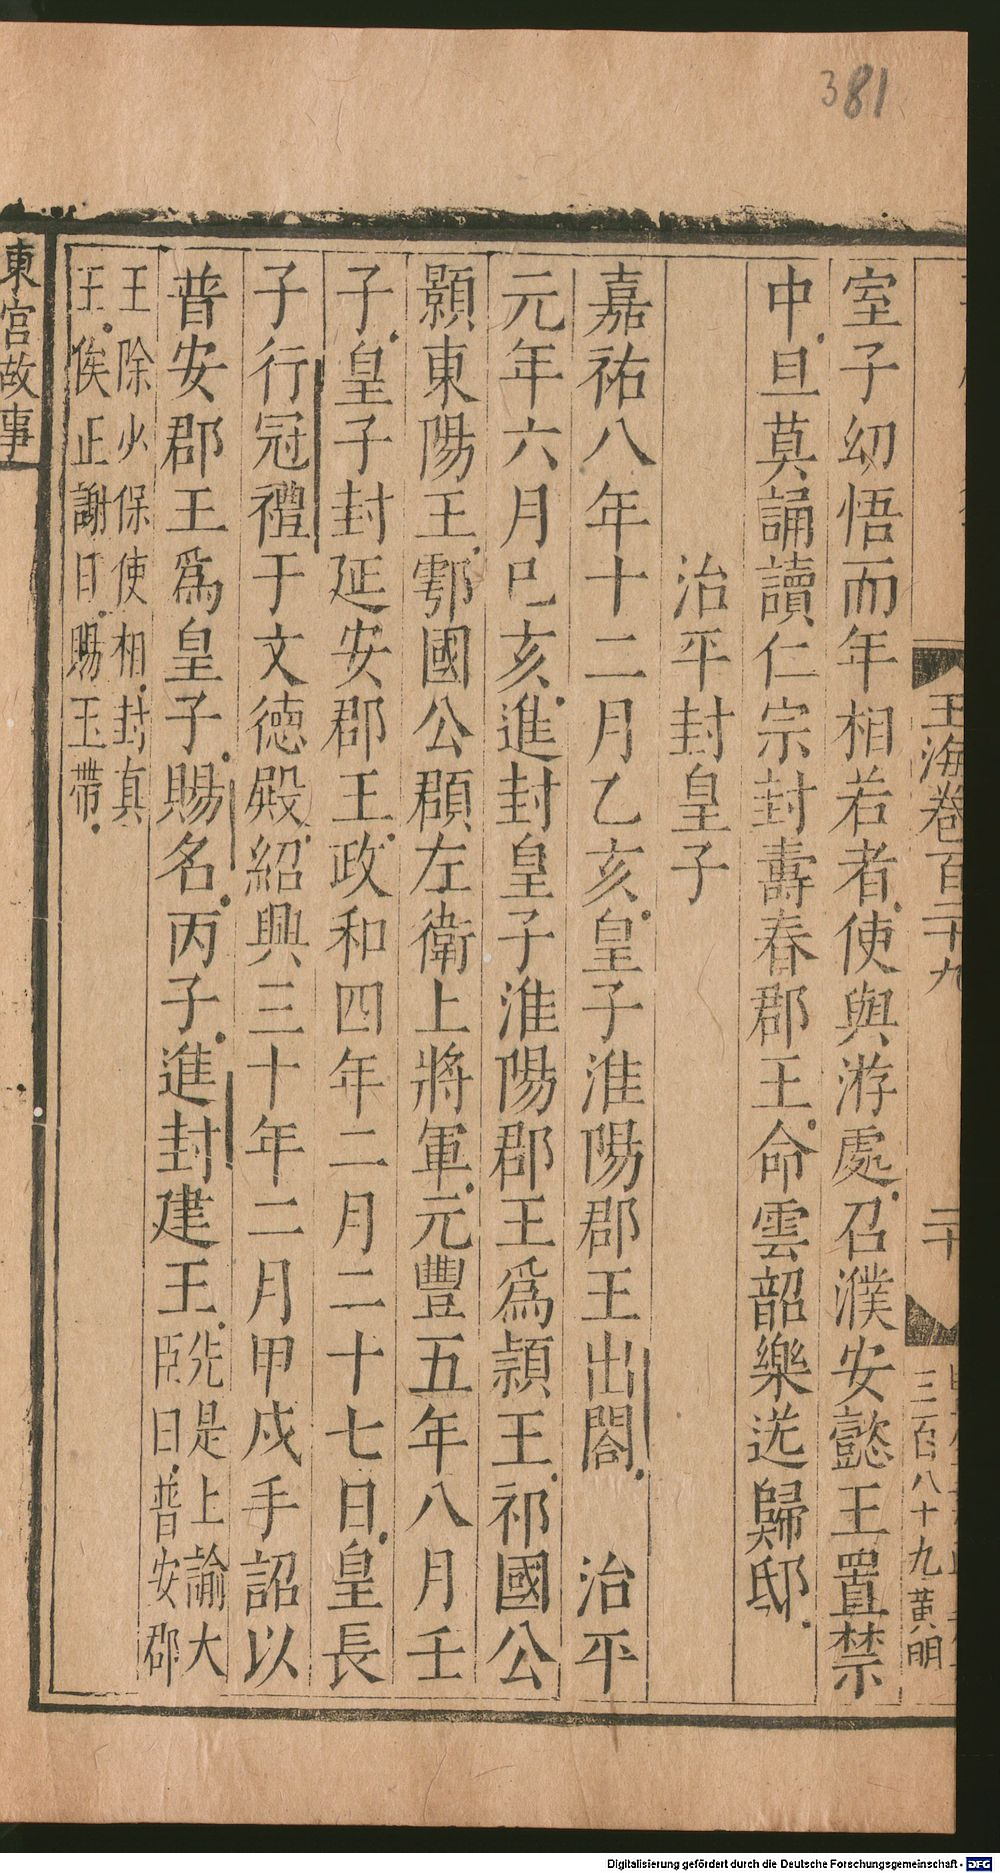 381
玉海卷百二十九
二十
三百八十九 黃明
室子幼悟而年相若者使與游處召濮安懿王置禁
中旦莫誦讀仁宗封壽春郡王命雲韶樂送歸邸
治平封皇子
嘉祐八年十二月乙亥皇子淮陽郡王出閤 治平
元年六月己亥進封皇子淮陽郡王爲潁王祁國公
顥東陽王鄠國公頵左衛上將軍元豐五年八月壬
子皇子封延安郡王政和四年二月二十七日皇長
子行冠禮于文德殿紹興三十年二月甲戌手詔以
普安郡王爲皇子賜名丙子進封建王先是上諭大
臣曰普安郡
王除少保使相封真
王俟正謝日賜玉帶
東宮故事
Digitalisierung gefördert durch die Deutsche Forschungsgemeinschaft - DFG